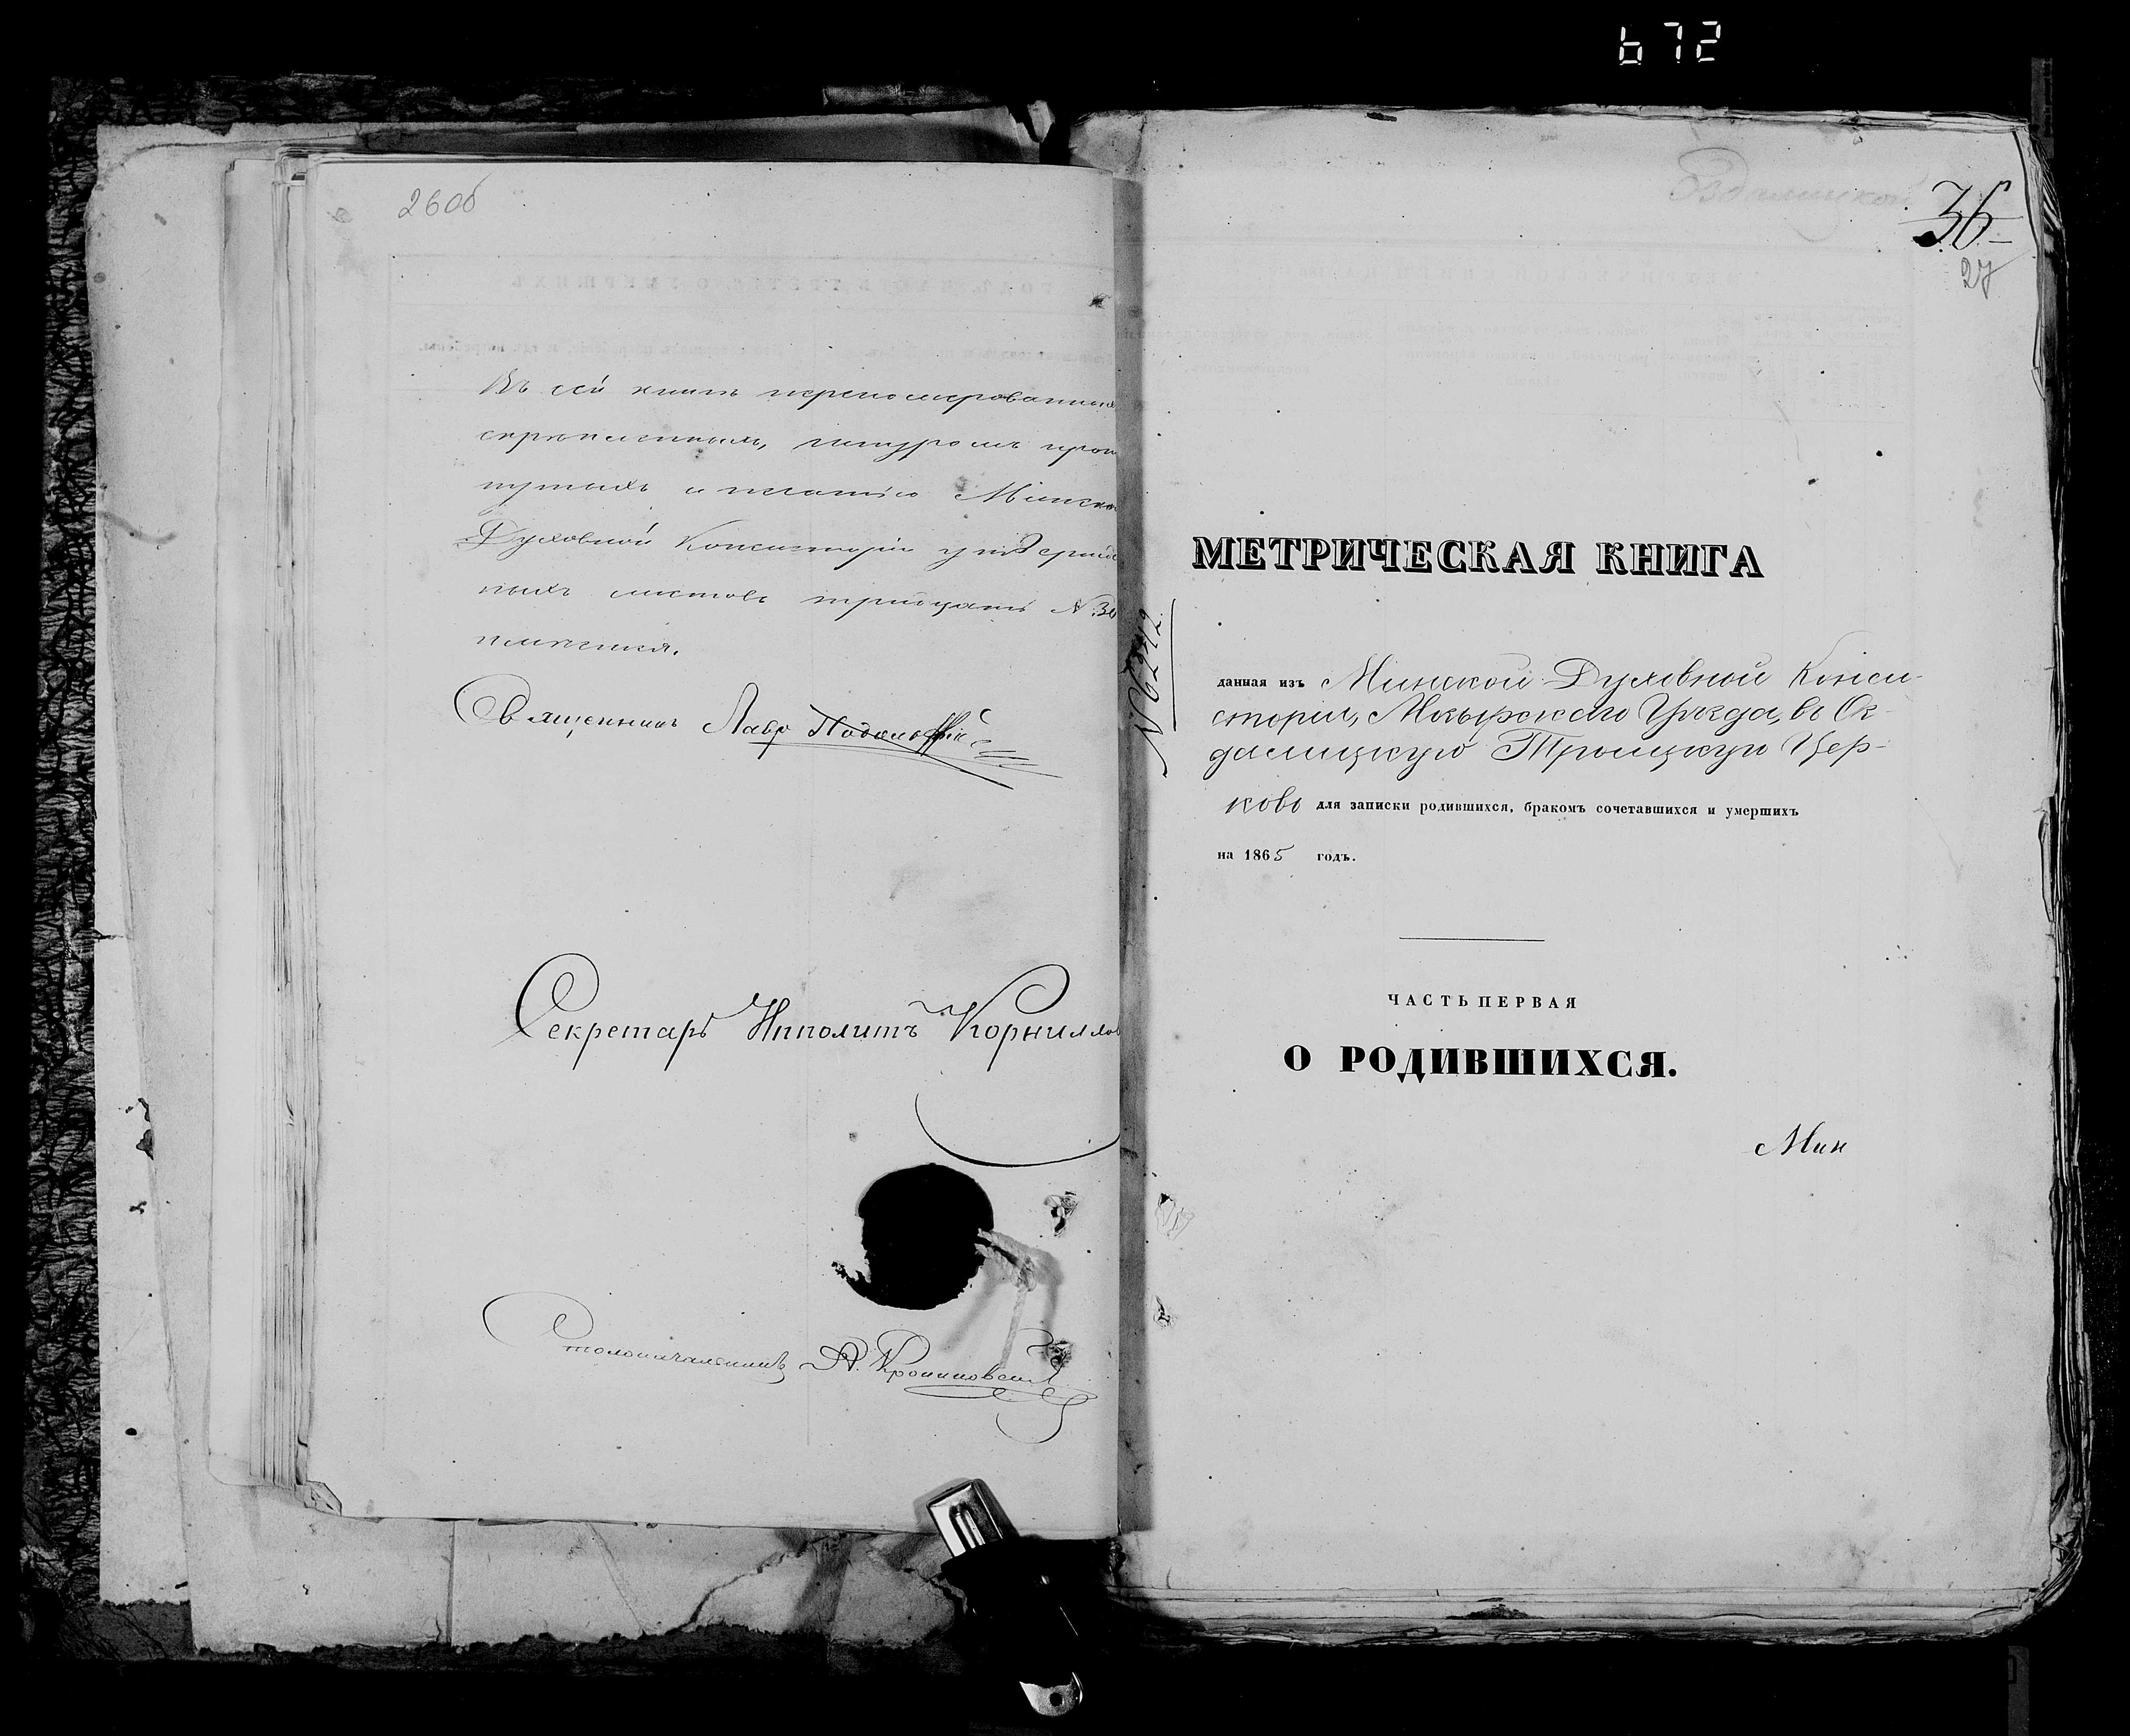 672
26об
Въ сей книгѣ перенумерованныхъ
скрѣпленныхъ, шнуромъ прош
нутыхъ и печатью Минско
Духовной Консисторіи утвержде
ныхъ листовъ тридцать №30
Священникъ Лавръ
Секретарь Ипполитъ Корнилов
Столоначальникъ А.
36
27
МЕТРИЧЕСКАЯ КНИГА
№ 6242
данная изъ Минской Духовной Конси-
сторіи, Мозырскаго Уѣзда, въ Ск-
далицкую Троицкую Цер-
ковь для записки родившихся, бракомъ сочетавшихся и умершихъ
на 1865 годъ.
ЧАСТЬ ПЕРВАЯ
О РОДИВШИХСЯ.
Мин